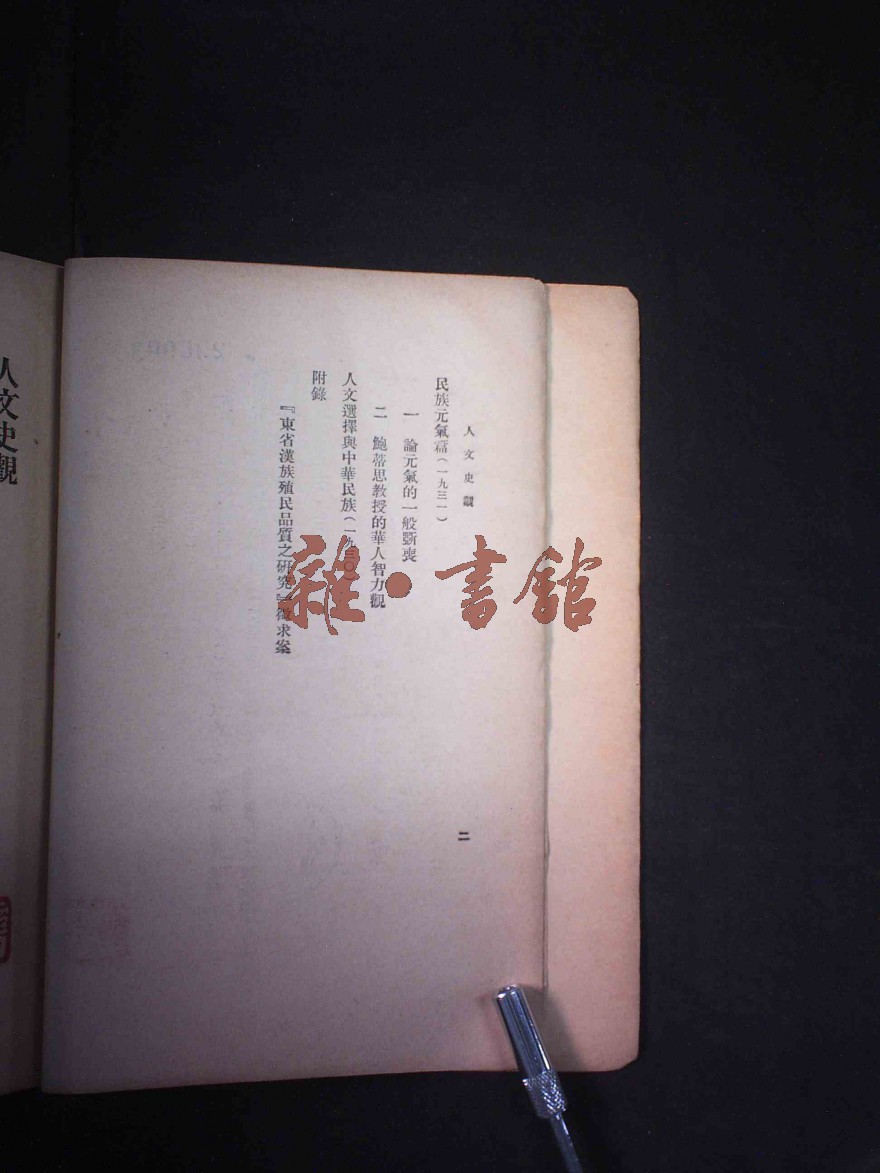 人文史觀
民族元氣篇(一九三一)
一 論元氣的一般斲喪
二 鮑蒂思教授的華人智力觀
人文選擇與中華民族(一九三〇)
附錄
『東省漢族殖民品質之研究』徵求案
二
人文史觀
雜·書館